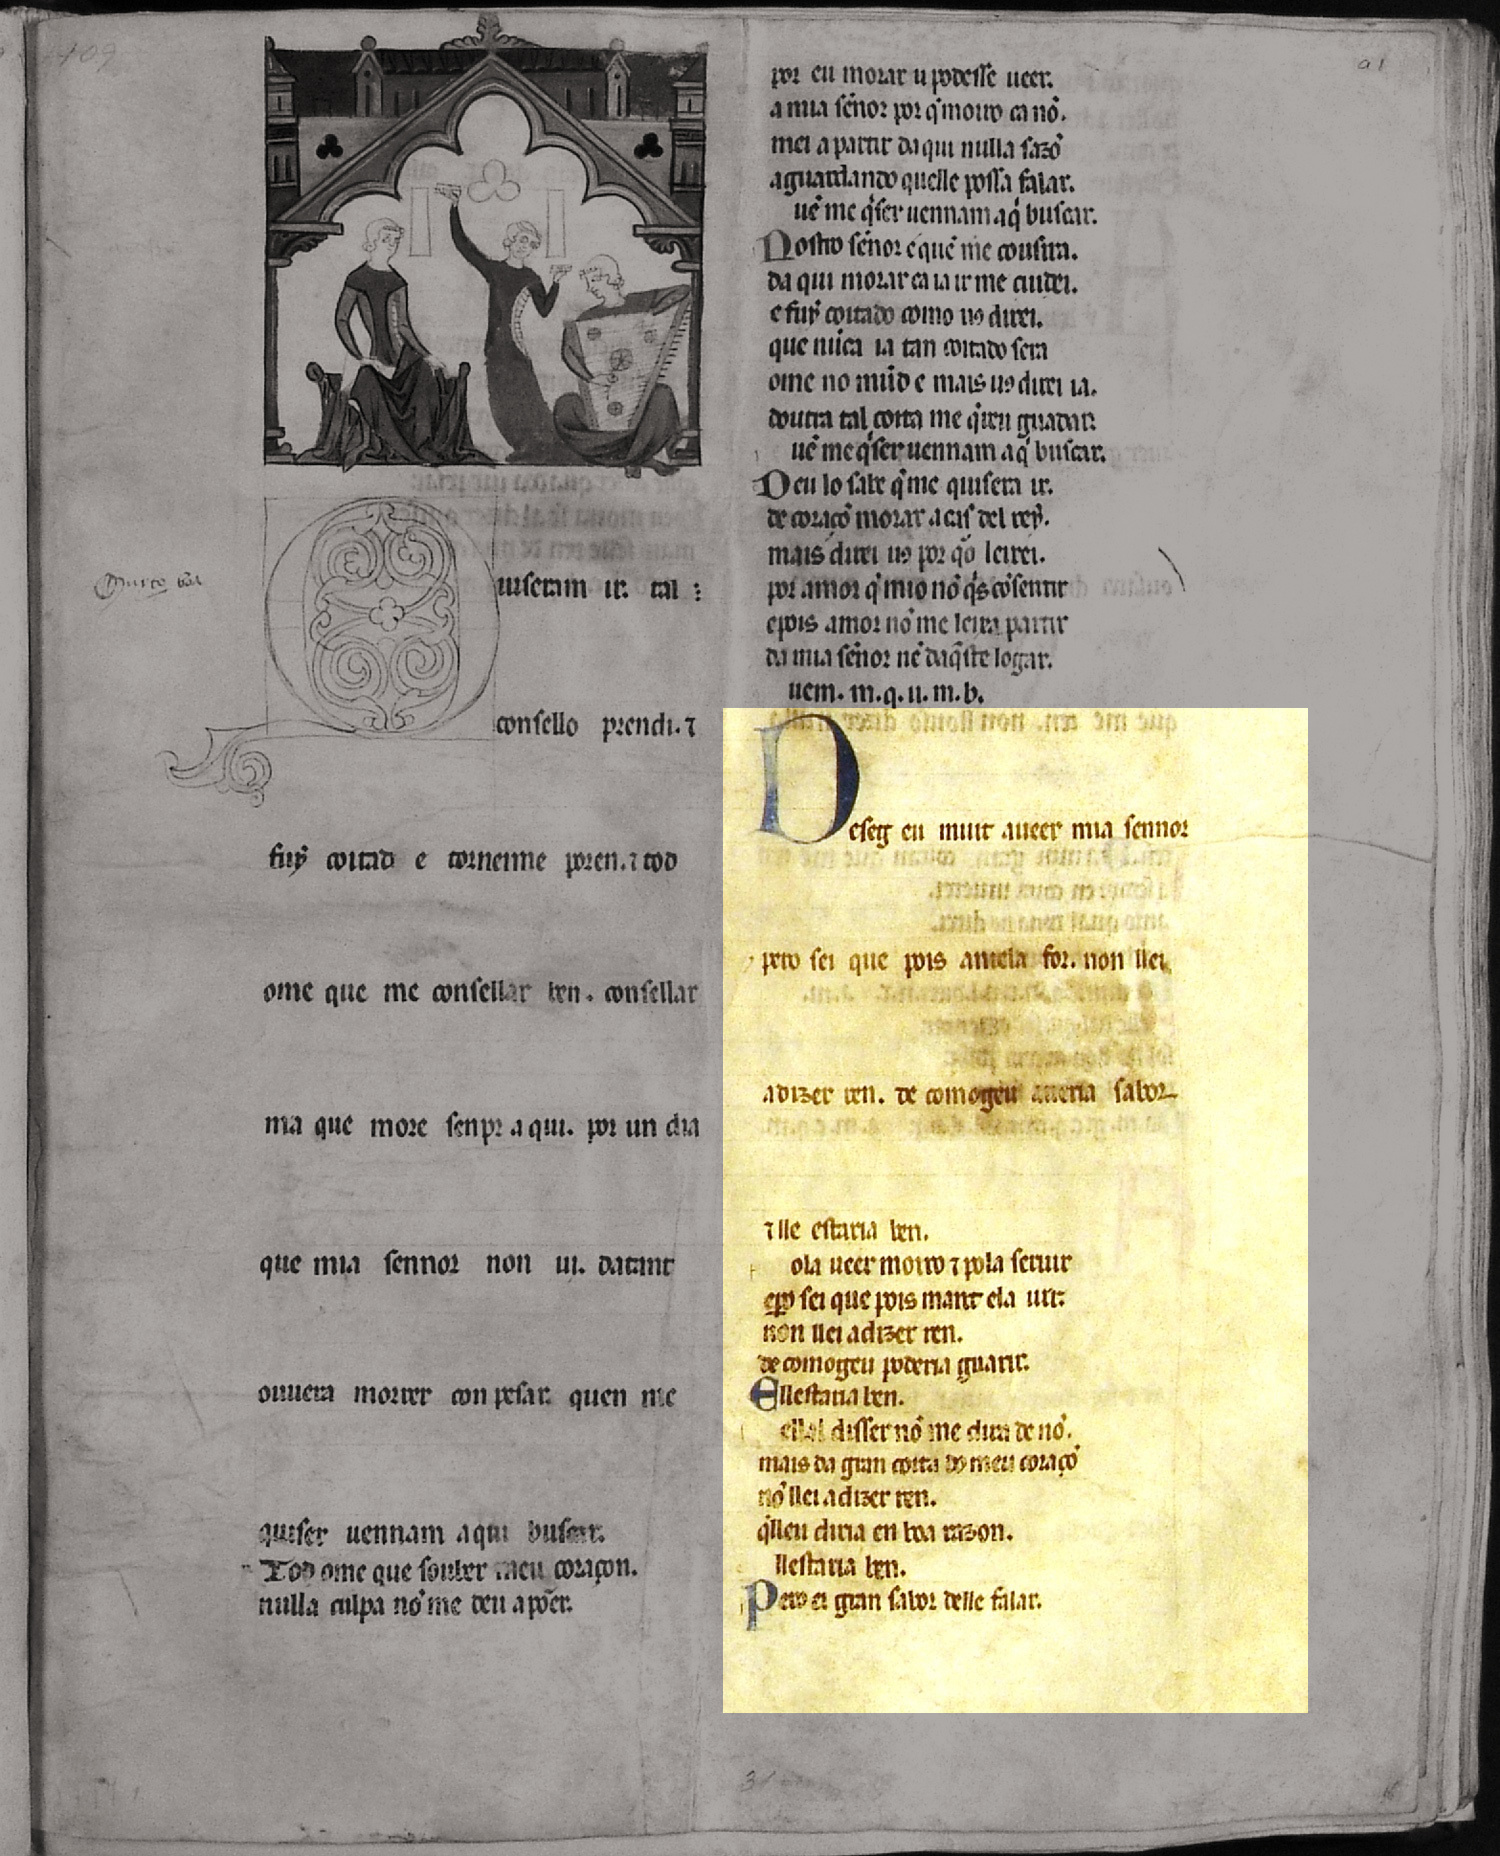 109
91
Quiseram ir. tal
consello prendi. ⁊
fuy coitad e torneime poren. ⁊ tod
ome que me consellar ben. consellar
ma que more senpr aqui. por un dia
que mia sennor non ui. datant
ouuera morrer con pesar. quen me
quiser uennam aqui buscar.
Tod ome que souber meu coraçon.
nulla culpa nõ me deu a põer.
por eu morar u podesse ueer.
a mia sẽnor por q̃ moiro ca nõ.
mei a partir daqui nulla sazõ
aguardando quelle possa falar.
uẽ me q̃ser uennam aq̇ buscar.
Nostro sẽnor e quẽ me cousira.
da qui morar ca ia ir me cuidei.
e fuy coitado como uꝯ direi.
que nũca ia tan coitado sera
ome no mũd e mais uꝯ direi ia.
doutra tal coita me q̇reu guadar.
uẽ me q̇ser uennam aq̇ buscar.
Deu lo sabe q̃ me quisera ir.
de coraçõ morar a cas del rey.
mais direi uꝯ por qõ leixei.
por amor q̃ mio nõ q̇s cõsentir
e pois amor nõ me leixa partir
da mia sẽnor nẽ daq̃ste logar.
uem. m. q. u. m. b.
Deseg eu muit aueer mia sennor
pero sei que pois antela for. non llei
a dizer ren. de comogeu aueria sabor
⁊ lle estaria ben.
ola ueer moiro ⁊ pola seruir
e ꝑo sei que pois mant ela uir.
non llei a dizer ren.
de comogeu poderia guarir.
Ellestaria ben.
disser nõ me dira de nõ.
mais da gran coita do meu coraçõ
nõ llei a dizer ren.
q̃lleu diria en boa razon.
llestaria ben.
Pero ei gran sabor delle falar.
31